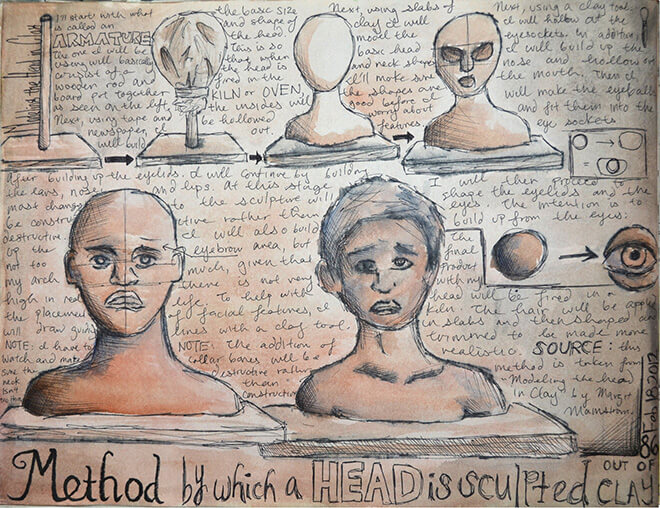 Modeling the Head in Clay
I'll start with what
is called an
ARMATURE
The one I will be
using will basically
consist of a
wooden rod and
board put together
as seen on the left.
Next, using tape and
newspaper, I
will build
the basic size
and shape of
the head.
This is so
that when
the head is
fired in the
KILN or OVEN,
the insides will
be hollowed
out.
Next, using slabs of
clay I will
model the
basic head
and neck shapes
I'll make sure
the shapes are
good before I
worry about
features.
Next, using a clay tool,
I will hollow out the
eyesockets. In addition,
I will build up the
nose and hollow out
the mouth. Then I
will make the eyeballs
and fit them into the
eye sockets
After building up the eyelids. I will continue by building
the ears, nose and lips. At this stage
most changes to the sculpture will
be constructive rather than
destructive. I will also build
up the eyebrow area, but
not too much, given that
my arch there is not very
high in real life. To help with
the placement of facial features, I
will draw guide lines with a clay tool.
NOTE: I have to
watch and make
sure the
neck
isn't
too thin
NOTE: The addition of
collar bones will be
destructive rather
than
constructive
I will then proceed to
shape the eyelids and the
eyes. The intention is to
build up from the eyes:
The
final
product
with my
head will be fired in a
kiln. The hair will be applied
in slabs and then shaped and
trimmed to be made more
realistic.
SOURCE: this
method is taken from
"Modeling the head
in Clay" by Margit
Malmstrom.
Feb 18 2012
OUT OF
Method by which a HEAD is sculpted CLAY